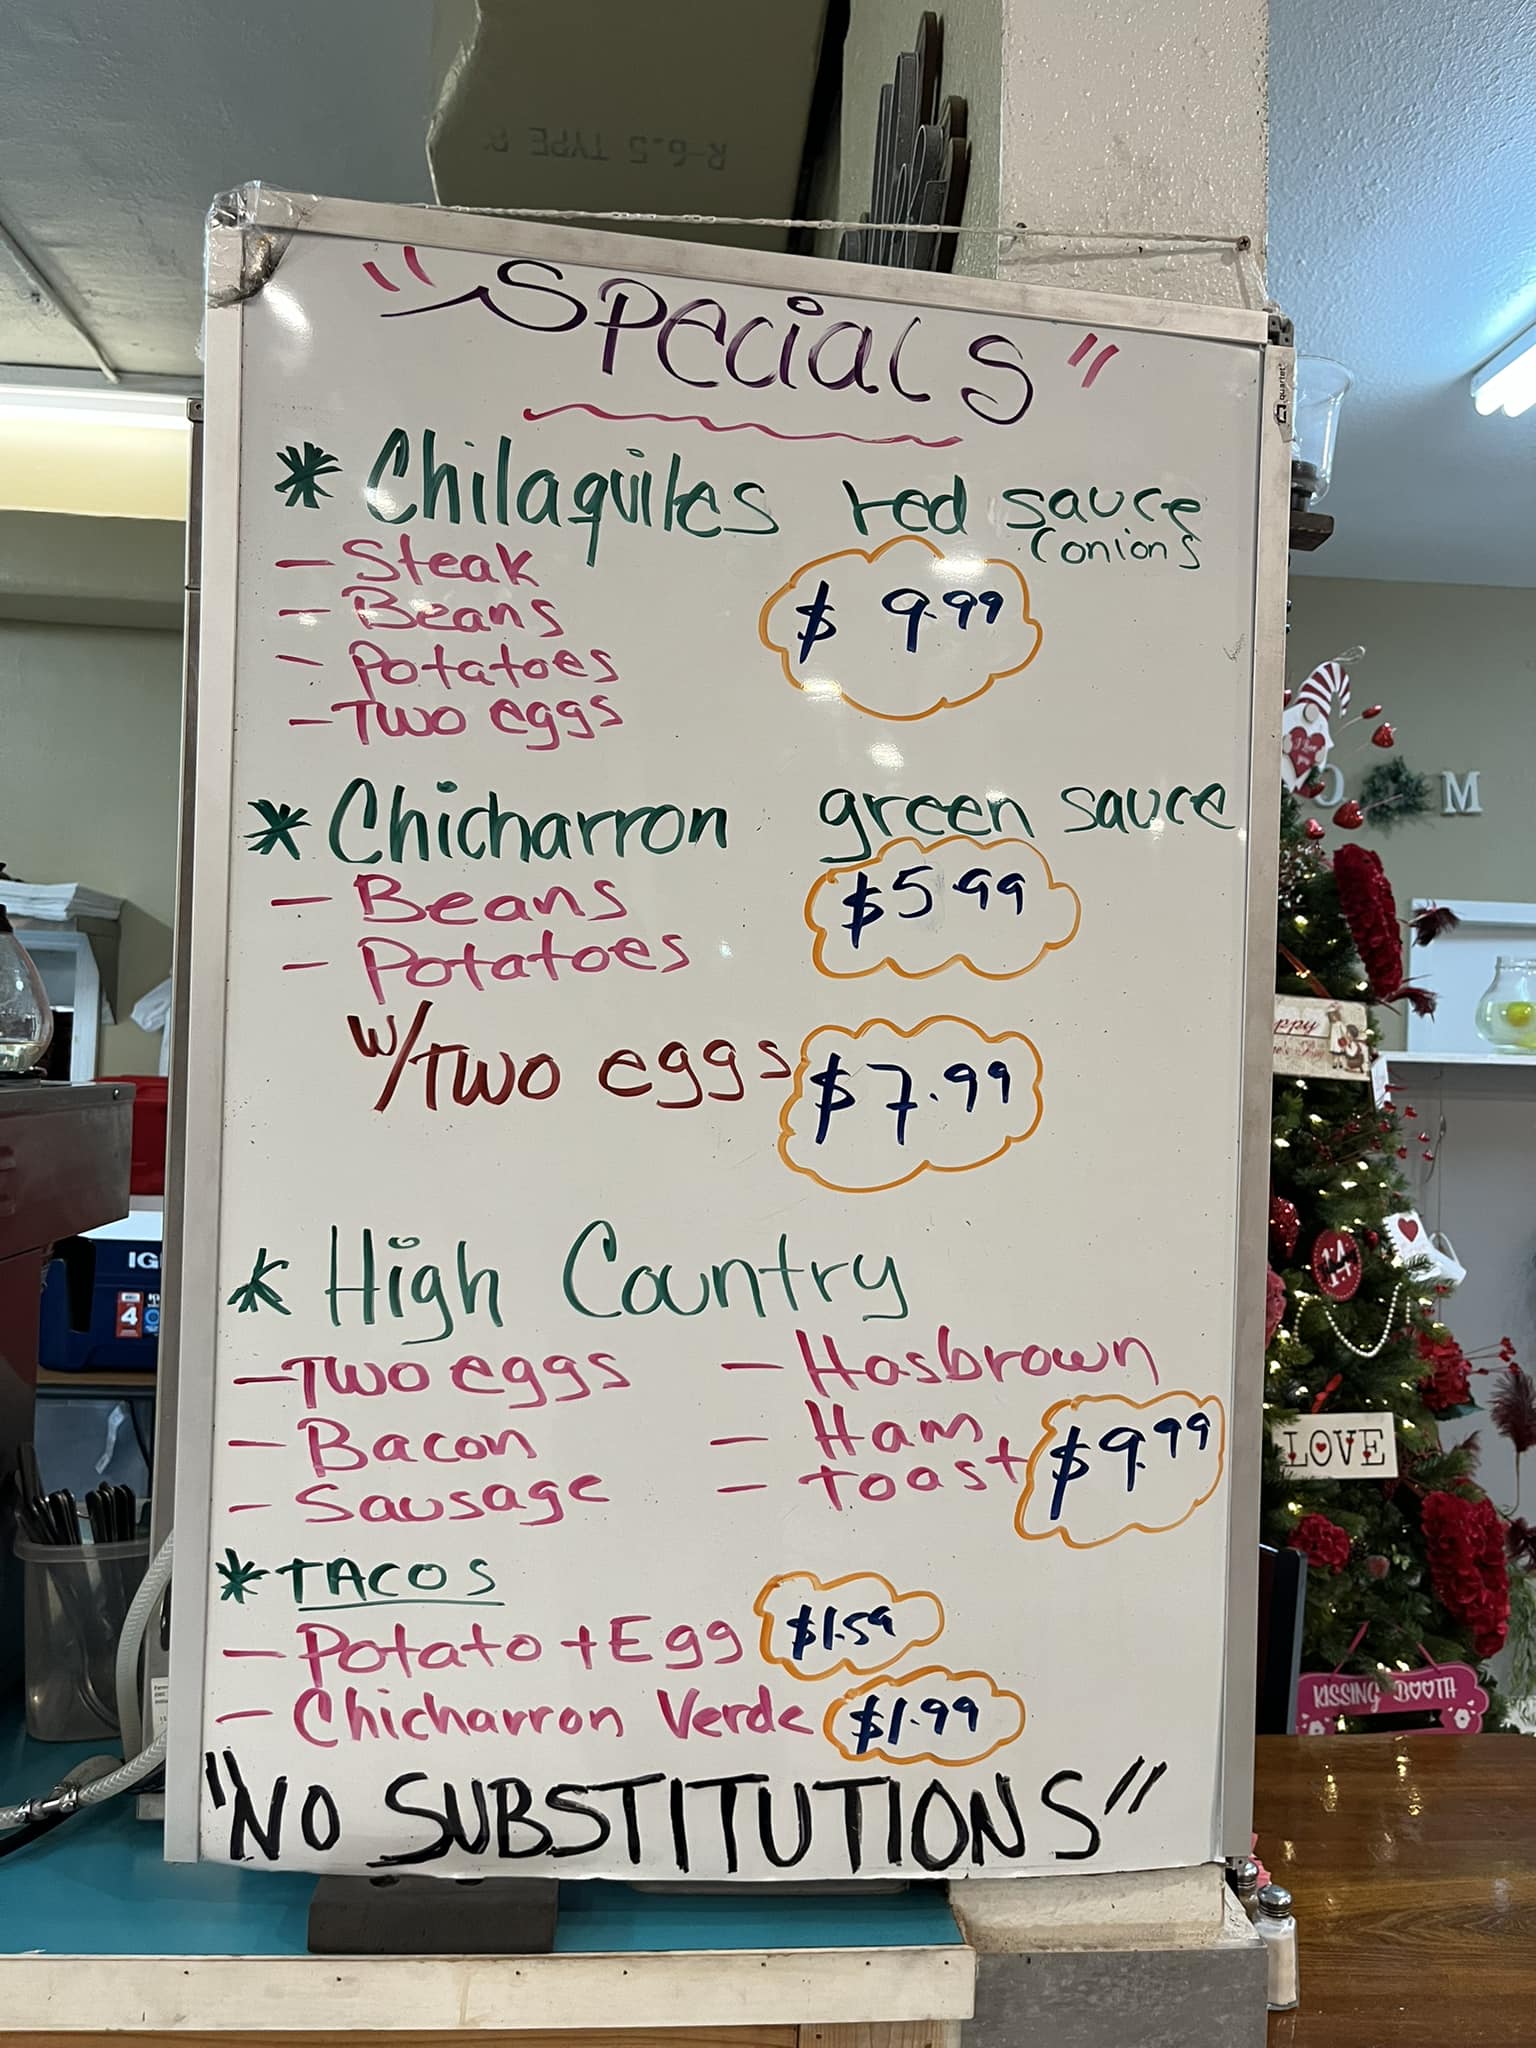 R-6.5 TYPE
"Specials"
quartet
* Chilaquiles red sauce
(onions
- Steak
- Beans
- Potatoes
- Two eggs
$ 9.99
* Chicharron green sauce
- Beans
- Potatoes
$5.99
w/Two eggs $7.99
* High Country
- Two eggs - Hasbrown
- Bacon - Ham
- Sausage - toast $9.99
* TACOS
- Potato + Egg $1.59
- Chicharron Verde $1.99
"NO SUBSTITUTIONS"
O M
IG
4
14
LOVE
KISSING BOOTH